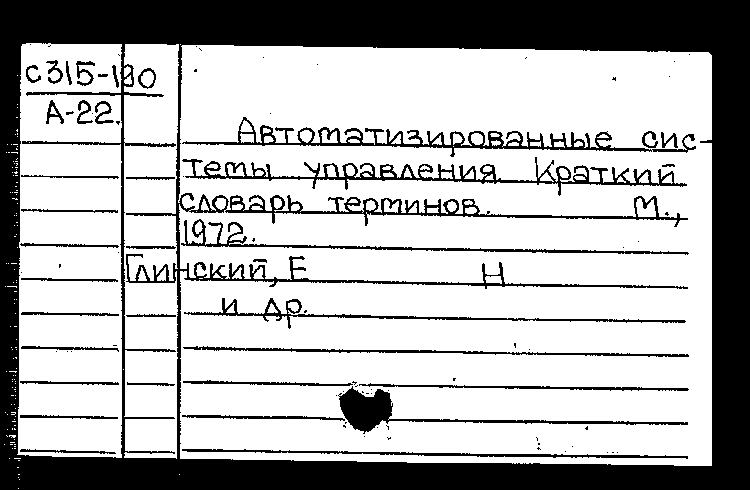 С315-190
А-22.
Автоматизированные сис-
темы управления. Краткий
словарь терминов. М.,
1972.
Глинский, Е Н
и др.